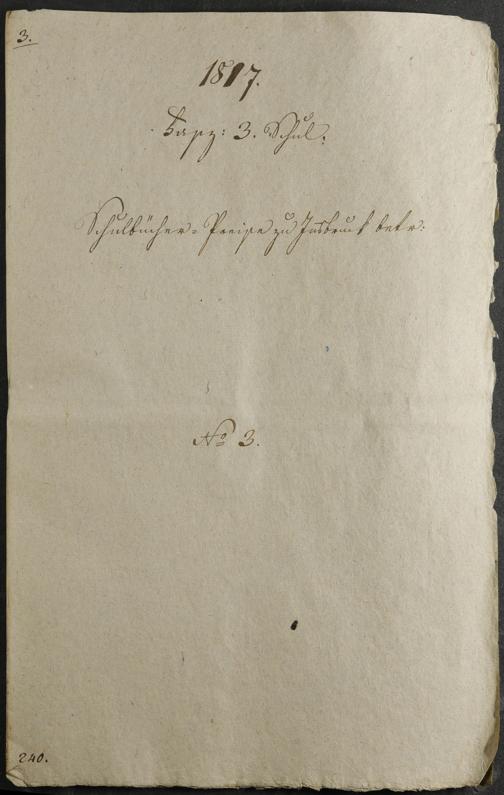 3.
1817.
Fasz: 3. Schul.
Schulbücher-Preise zu Insbruck betr:
No 3.
240.